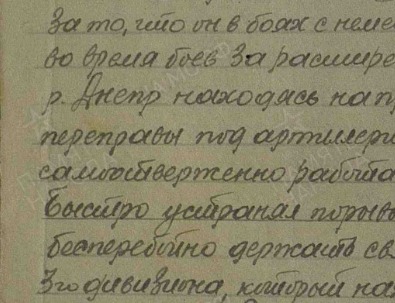 За то, что он в боях с неме
во время боев за расшире
р. Днепр находясь на пр
переправы под артиллери
самоотверженно работа
Быстро устранял порывы
бесперебойно держать св
3го дивизиона, который на